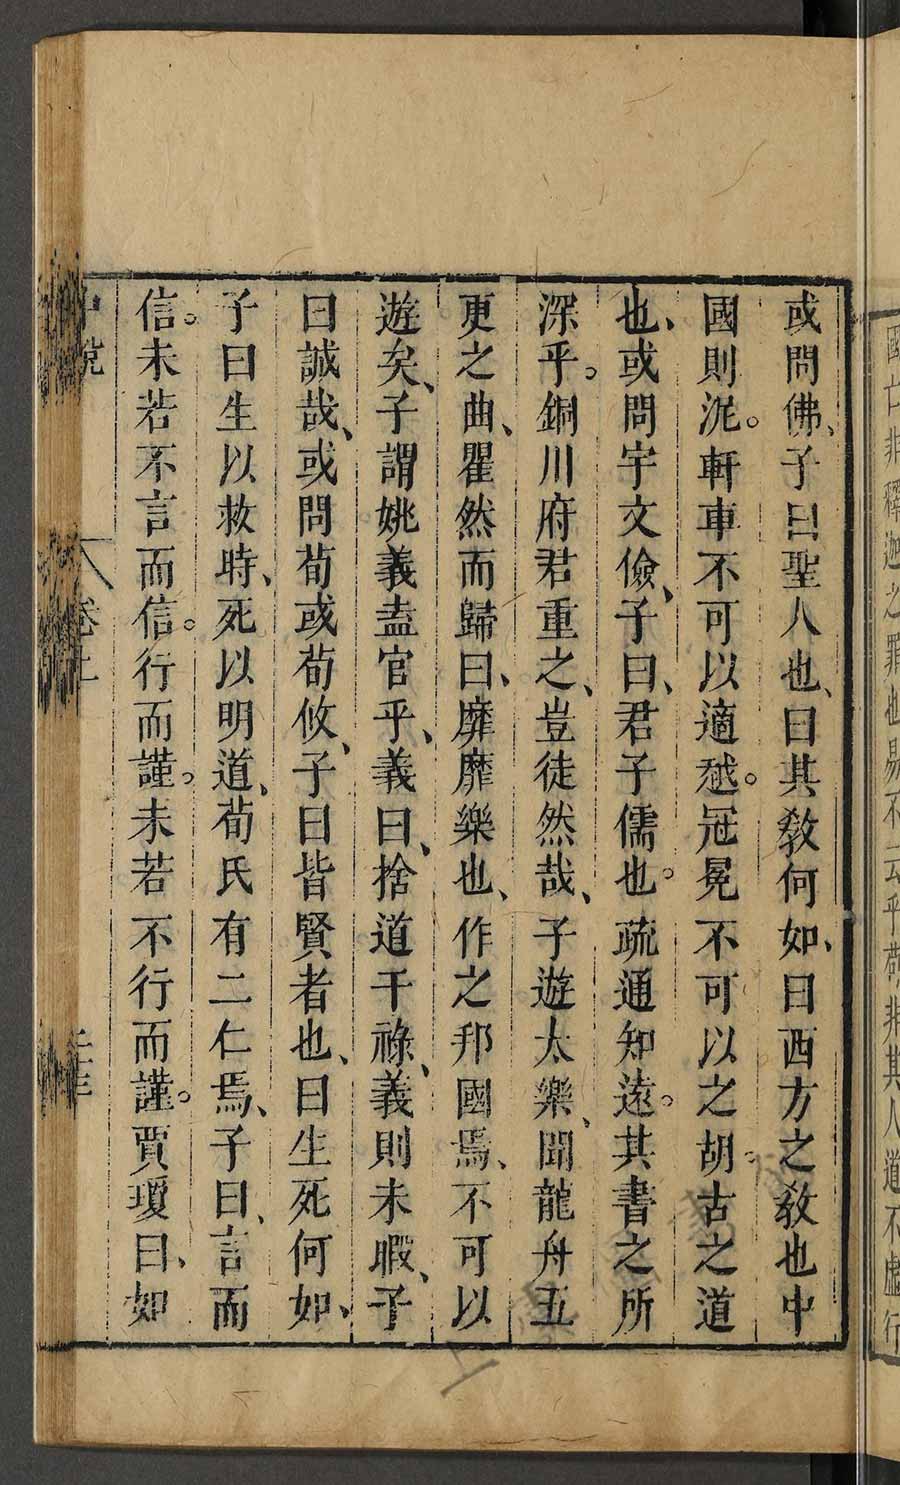 國亡非釋迦之罪也易不云乎苟非其人道不虛行
或問佛、子曰聖人也、曰其敎何如、曰西方之敎也中
國則泥。軒車不可以適越。冠冕不可以之胡。古之道
也、或問宇文儉、子曰、君子儒也。疏通知遠。其書之所
深乎。銅川府君重之、豈徒然哉、子遊太樂、聞龍舟五
更之曲、瞿然而歸曰、靡靡樂也、作之邦國焉、不可以
遊矣、子謂姚義盍官乎、義曰、捨道干祿、義則未暇、子
曰誠哉、或問荀或荀攸、子曰皆賢者也、曰生死何如、
子曰生以救時、死以明道、荀氏有二仁焉、子曰、言而
信。未若不言而信。行而謹。未若不行而謹。賈瓊曰、如
中說 卷上